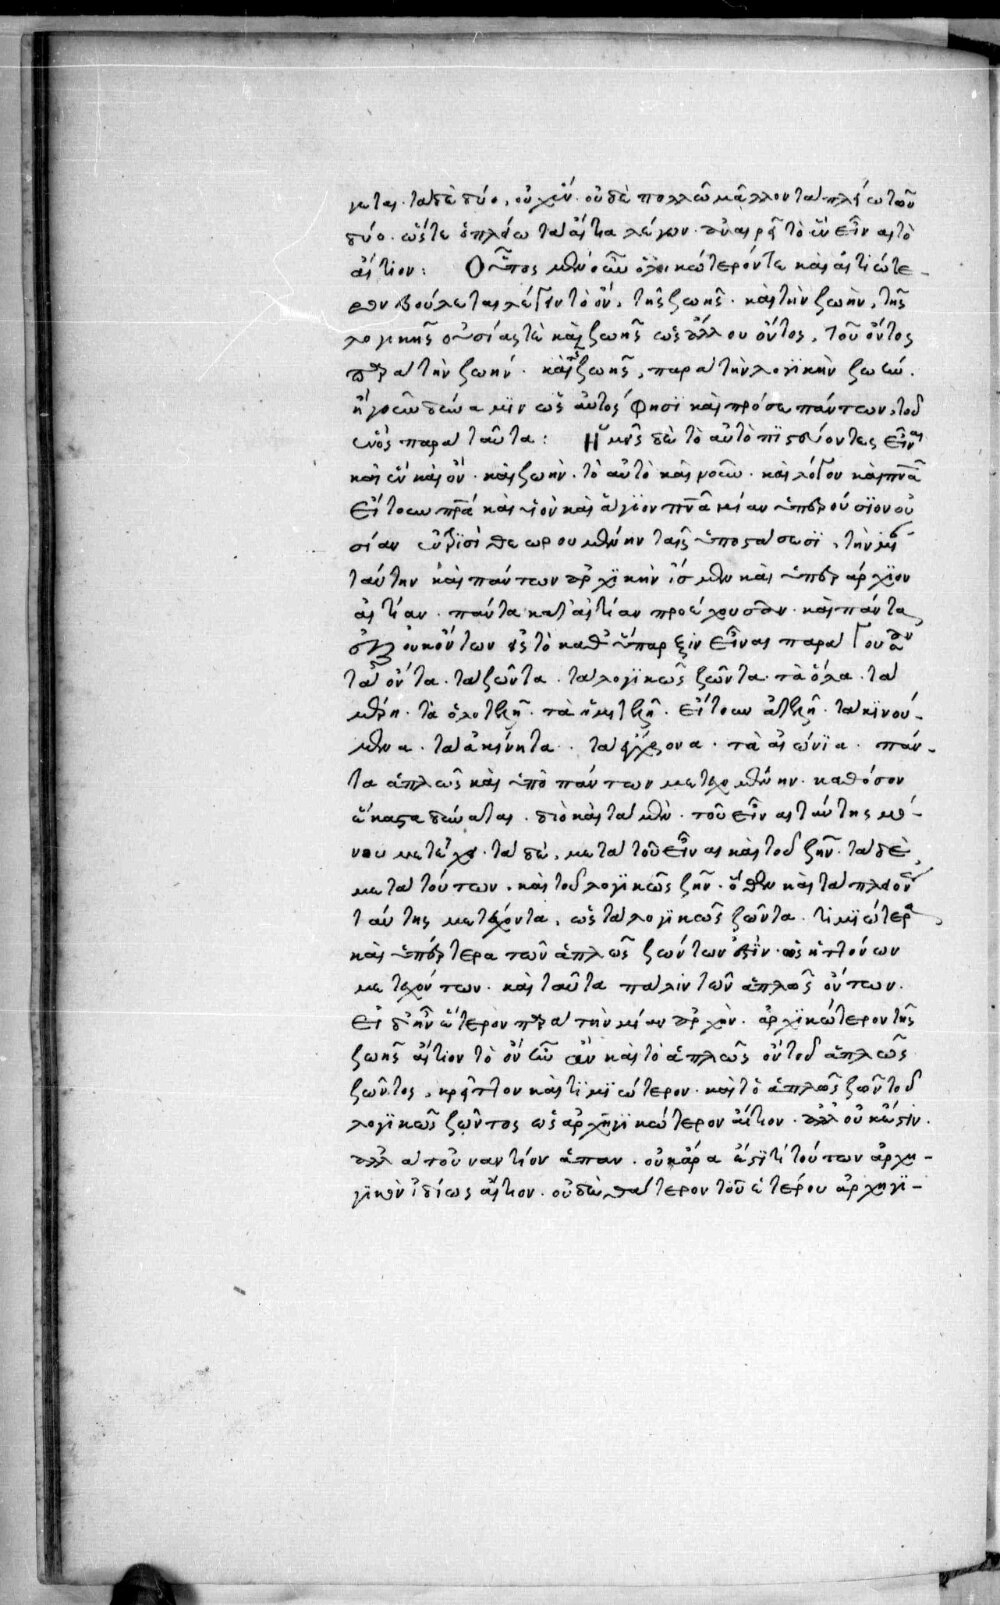 γεται. τὰ δὲ δύο, οὐχ ἕν. οὐδὲ πολλῶ μᾶλλον τὰ πλείω τῶν
δύο. ὥστε ὁ πλείω τὰ αἴτια λέγων. ἀναιρεῖ τὸ ἓν εἶναι τὸ
αἴτιον: Οὗτος μὲν οὖν ὁλικώτερόν τε καὶ αἰτιώτε-
ρον βούλεται λέγειν τὸ ὂν, τῆς ζωῆς. καὶ τὴν ζωὴν, τῆς
λογικῆς οὐσίας τὲ καὶ ζωῆς ὡς ἄλλου ὄντος, τοῦ ὄντος
παρὰ τὴν ζωήν. καὶ τῆς ζωῆς, παρὰ τὴν λογϊκὴν ζωήν.
ἢ γοῦν δύναμϊν ὡς αὐτός φησϊ καὶ πρόσω πάντων, τοῦ
ἑνὸς παρὰ ταῦτα: Ἡμεῖς δὲ τὸ αὐτὸ πϊστεύοντες εἶναι
καὶ ἓν καὶ ὂν. καὶ ζωὴν. τὸ αὐτὸ καὶ νοῦν. καὶ λόγον καὶ πνᾶ
εἴτουν πρᾶ καὶ υἱὸν καὶ ἅγϊον πνᾶ μίαν ὑπερούσϊον οὐ
σίαν ἐν τρϊσὶ θεωρουμένην ταῖς ὑποστάσεσϊ, τὴν μὲν
ταύτην καὶ πάντων ἀρχϊκὴν ἴσμεν καὶ ὑπεράρχϊον
αἰτίαν. πάντα κατ' αἰτίαν προέχουσαν. καὶ πάντα
ἐκ οὐκ ὄντων εἰς τὸ καθ' ὕπαρξιν εἶναι παραγουσαν
τὰ ὄντα. τὰ ζῶντα. τὰ λογϊκῶς ζῶντα. τὰ ὅλα. τὰ
μέρη. τὰ ὁλοτελῆ. τὰ ἡμιτελῆ. εἴτουν ἀτελῆ. τὰ κϊνού-
μενα. τὰ ἀκίνητα. τὰ ἔγχρονα. τὰ αἰώνϊα. πάν-
τα ἁπλῶς καὶ ὑπὸ πάντων μετεχομένην. καθόσον
ἕκαστα δύναται. διὸ καὶ τὰ μὲν. τοῦ εἶναι ταύτης μό-
νου μετέχει. τὰ δὲ, μετὰ τοῦ εἶναι καὶ τοῦ ζῆν. τὰ δὲ
μετὰ τούτων. καὶ τοῦ λογϊκῶς ζῆν. ὅθεν καὶ τὰ πλειόνως
ταύτης μετέχοντα, ὡς τὰ λογϊκῶς ζῶντα. τϊμϊώτερα
καὶ ὑπέρτερα τῶν ἁπλῶς ζώντων ἐστϊν. ὡς ἡττόνων
μετεχόντων. καὶ ταῦτα πάλιν τῶν ἁπλῶς ὄντων.
Εἰ δ' ἦν ἕτερον παρὰ τὴν μίαν ἀρχὴν. ἀρχϊκώτερον τῆς
ζωῆς αἴτιον τὸ ὂν ἦν ἂν καὶ τὸ ἁπλῶς ὂν τοῦ ἁπλῶς
ζῶντος, κρεῖττον καὶ τϊμϊώτερον. καὶ τὸ ἁπλῶς ζῶν τοῦ
λογϊκῶς ζῶντος ὡς ἀρχηγϊκώτερον αἴτιον. ἀλλ' οὐκ ἔστϊν.
ἀλλὰ τοὐναντίον ἅπαν. οὐκ ἄρα ἐστϊ τὶ τούτων ἀρχη-
γϊκὸν ἰδίως αἴτιον. οὐδὲ θάτερον τοῦ ἑτέρου ἀρχηγϊ-